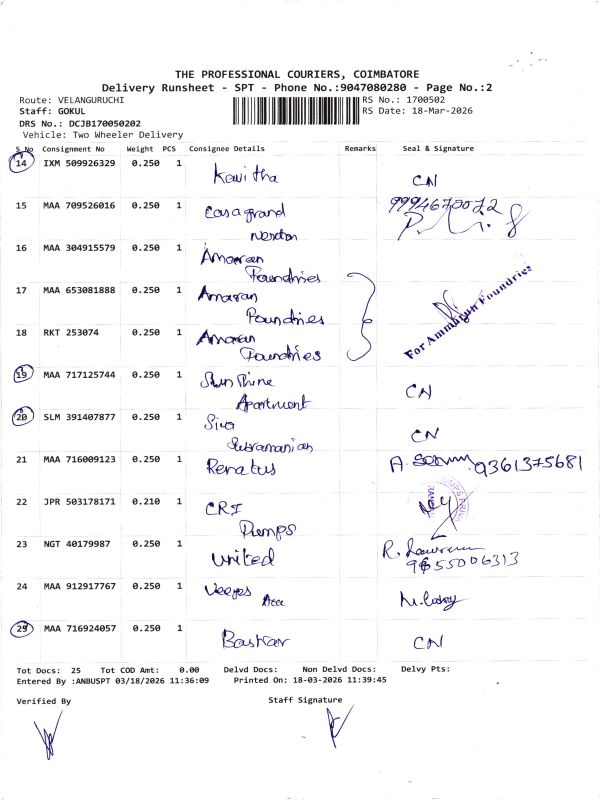 THE PROFESSIONAL COURIERS, COIMBATORE
Delivery Runsheet - SPT - Phone No.:9047080280 - Page No.:2
Route: VELANGURUCHI RS No.: 1700502
Staff: GOKUL RS Date: 18-Mar-2026
DRS No.: DCJB170050202
Vehicle: Two Wheeler Delivery
S No Consignment No Weight PCS Consignee Details Remarks Seal & Signature
14 IXM 509926329 0.250 1 Kavitha CN
15 MAA 709526016 0.250 1 Casagrand
Newton
16 MAA 304915579 0.250 1 Amaran
Foundries
17 MAA 653081888 0.250 1 Amaran
Foundries
18 RKT 253074 0.250 1 Amaran
Foundries
For Ammarun Foundries
19 MAA 717125744 0.250 1 Sun Shine
Apartment CN
20 SLM 391407877 0.250 1 Siva
Subramanian CN
21 MAA 716009123 0.250 1 Renatus 9361375681
22 JPR 503178171 0.210 1 CRI
Pumps
23 NGT 40179987 0.250 1 United
24 MAA 912917767 0.250 1
25 MAA 716924057 0.250 1 Baskar CN
Tot Docs: 25 Tot COD Amt: 0.00 Delvd Docs: Non Delvd Docs: Delvy Pts:
Entered By :ANBUSPT 03/18/2026 11:36:09 Printed On: 18-03-2026 11:39:45
Verified By Staff Signature